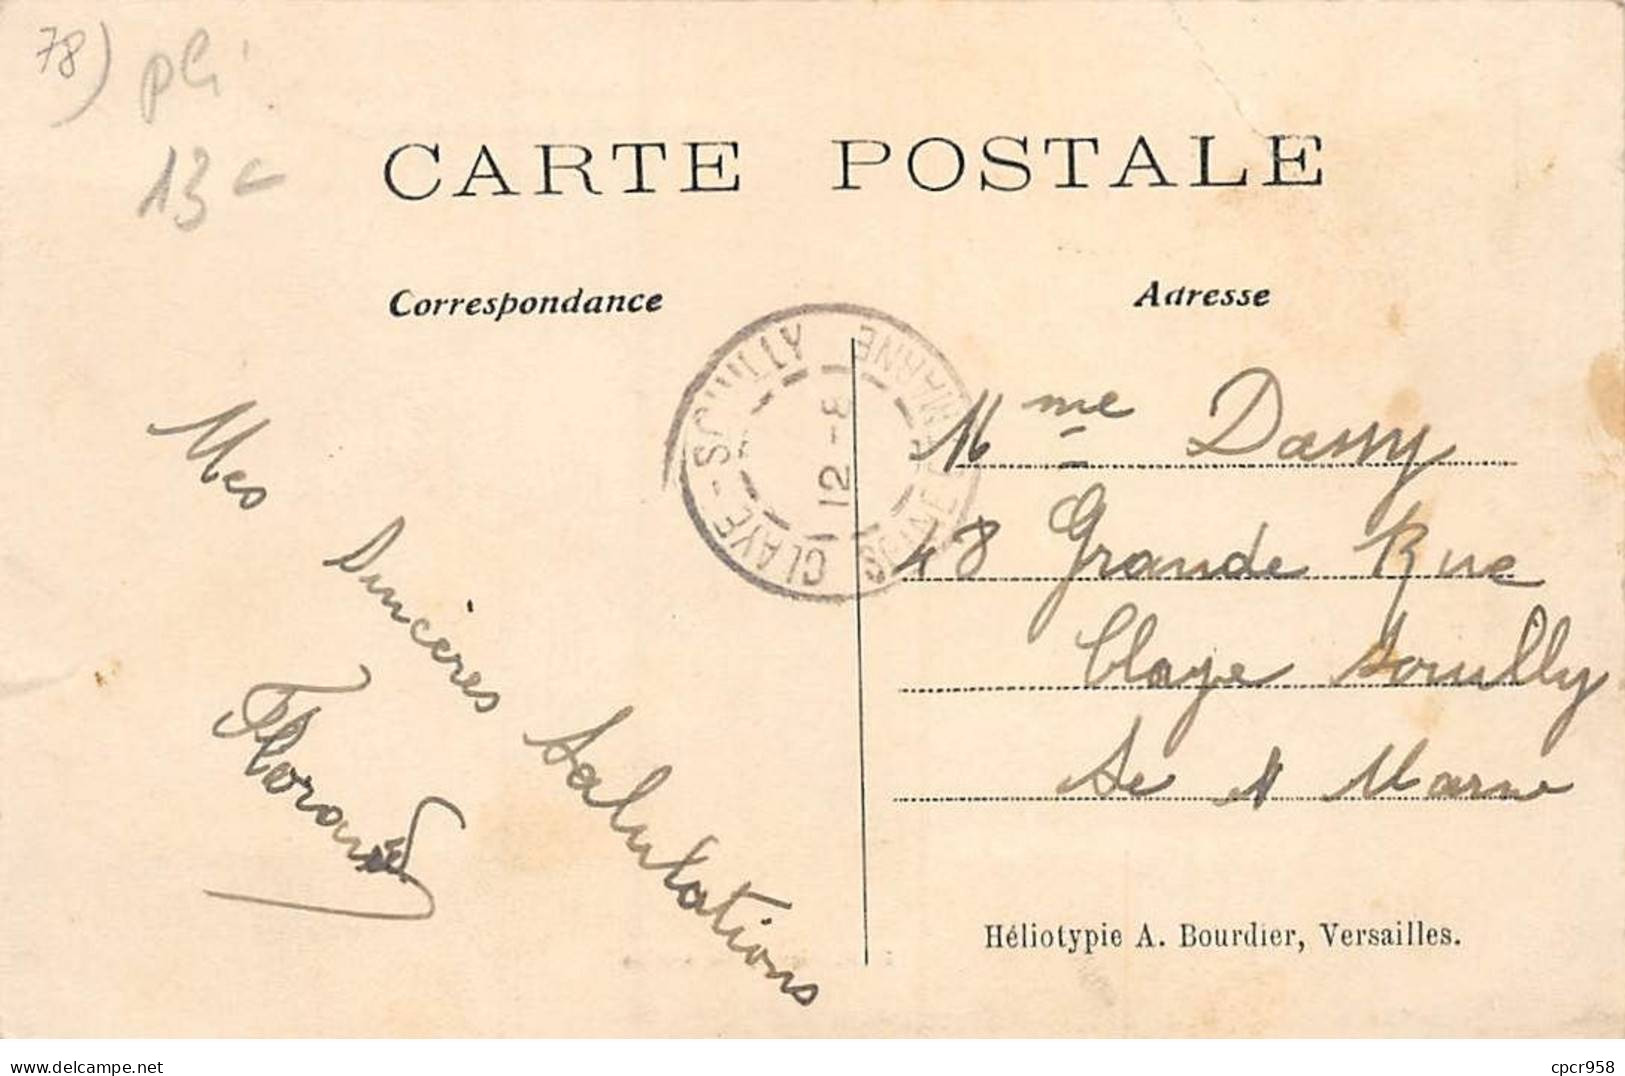 78)
pli
13c
CARTE POSTALE
Correspondance
Adresse
CLAYE-SOUILLY
12-8
SEINE ET MARNE
Mes
sincères
Salutations
Mme Dassy
48 Grande Rue
Claye Souilly
Se et Marne
Héliotypie A. Bourdier, Versailles.
delcampe.net
cpcr958